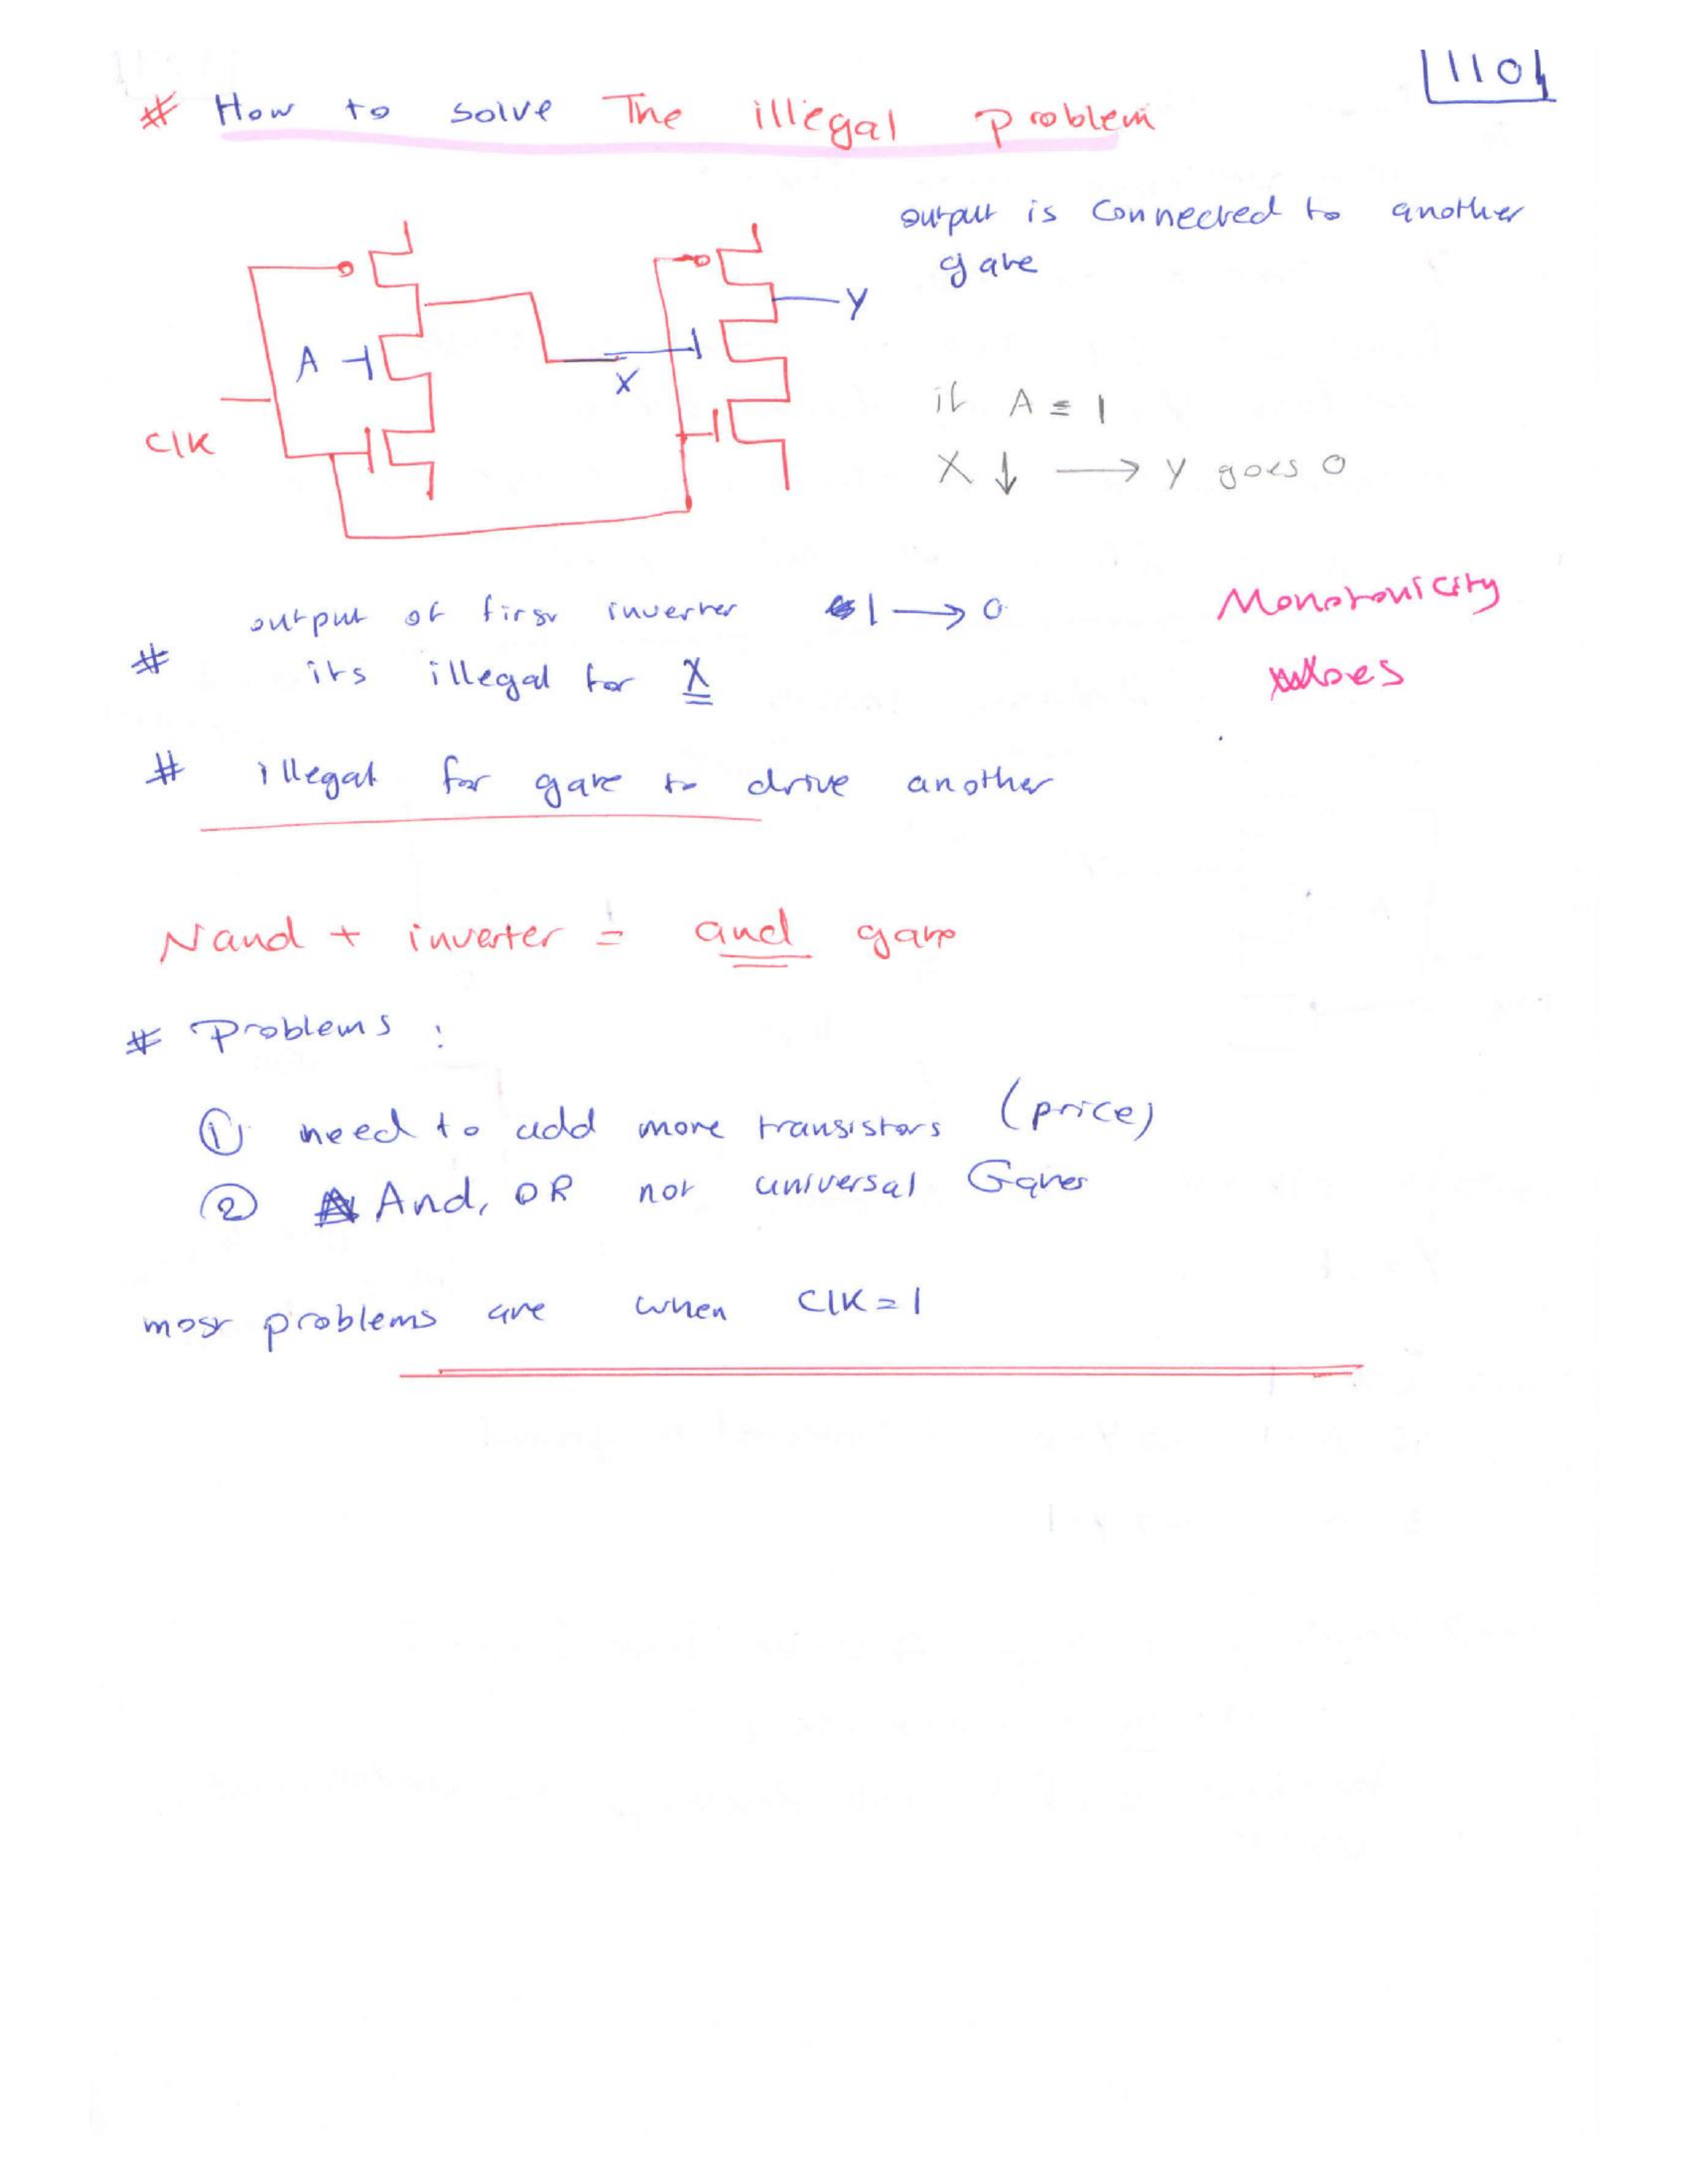 110
# How to solve The illegal problem
output is connected to another
gate
Y
A
X
if A = 1
Clk
X ↓ → Y goes 0
output of first inverter 1 → 0
Monotonicity
woes
# its illegal for X
# illegal for gate to drive another
Nand + inverter = and gate
# Problems :
① need to add more transistors (price)
② And, OR not universal Gates
most problems are when Clk = 1